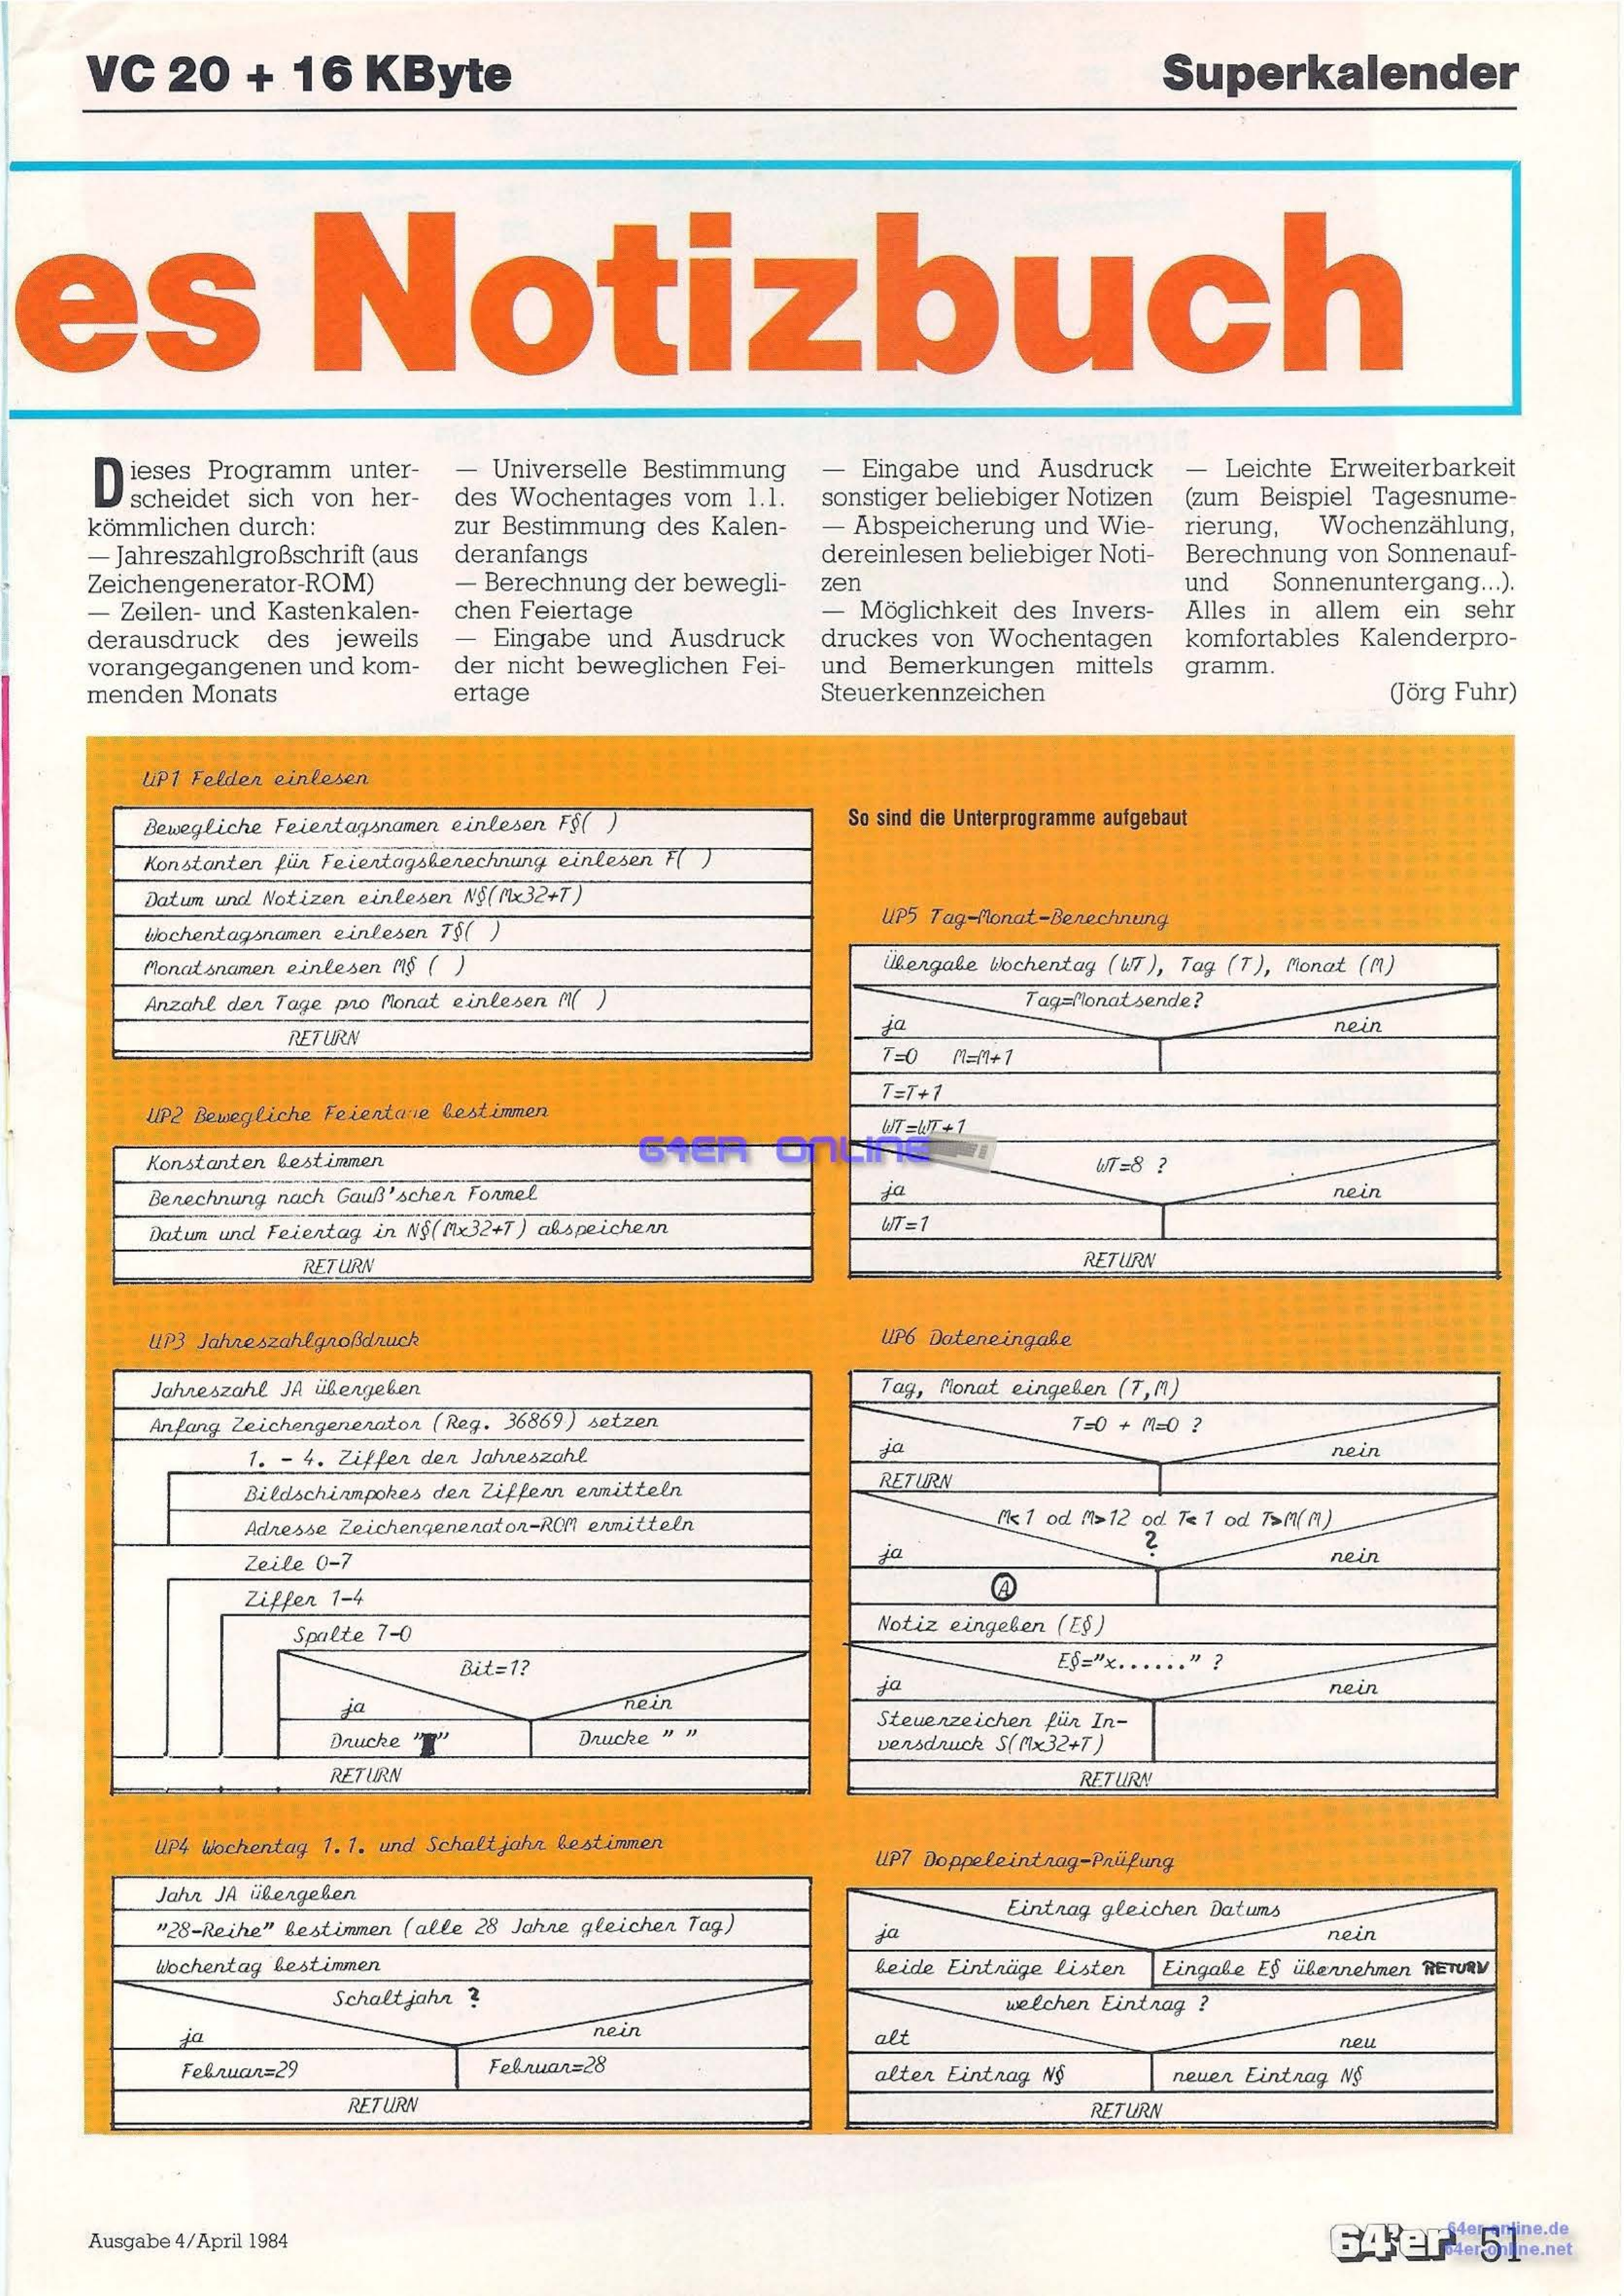 VC 20 + 16 KByte
Superkalender
es Notizbuch
Dieses Programm unter-
scheidet sich von her-
kömmlichen durch:
— Jahreszahlgroßschrift (aus
Zeichengenerator-ROM)
— Zeilen- und Kastenkalen-
derausdruck des jeweils
vorangegangenen und kom-
menden Monats
— Universelle Bestimmung
des Wochentages vom 1.1.
zur Bestimmung des Kalen-
deranfangs
— Berechnung der bewegli-
chen Feiertage
— Eingabe und Ausdruck
der nicht beweglichen Fei-
ertage
— Eingabe und Ausdruck
sonstiger beliebiger Notizen
— Abspeicherung und Wie-
dereinlesen beliebiger Noti-
zen
— Möglichkeit des Invers-
druckes von Wochentagen
und Bemerkungen mittels
Steuerkennzeichen
— Leichte Erweiterbarkeit
(zum Beispiel Tagesnume-
rierung, Wochenzählung,
Berechnung von Sonnenauf-
und Sonnenuntergang...).
Alles in allem ein sehr
komfortables Kalenderpro-
gramm.
(Jörg Fuhr)
UP1 Felder einlesen
Bewegliche Feiertagsnamen einlesen F§( )
Konstanten für Feiertagsberechnung einlesen F( )
Datum und Notizen einlesen N§(Mx32+T)
Wochentagsnamen einlesen T§( )
Monatsnamen einlesen M§ ( )
Anzahl der Tage pro Monat einlesen M( )
RETURN
UP2 Bewegliche Feiertage bestimmen
Konstanten bestimmen
Berechnung nach Gauß'scher Formel
Datum und Feiertag in N§(Mx32+T) abspeichern
RETURN
UP3 Jahreszahlgroßdruck
Jahreszahl JA übergeben
Anfang Zeichengenerator (Reg. 36869) setzen
1. - 4. Ziffer der Jahreszahl
Bildschirmpokes der Ziffern ermitteln
Adresse Zeichengenerator-ROM ermitteln
Zeile 0-7
Ziffer 1-4
Spalte 7-0
Bit=1?
ja
nein
Drucke "█"
Drucke " "
RETURN
UP4 Wochentag 1.1. und Schaltjahr bestimmen
Jahr JA übergeben
"28-Reihe" bestimmen (alle 28 Jahre gleicher Tag)
Wochentag bestimmen
Schaltjahr ?
ja
nein
Februar=29
Februar=28
RETURN
So sind die Unterprogramme aufgebaut
UP5 Tag-Monat-Berechnung
Übergabe Wochentag (WT), Tag (T), Monat (M)
Tag=Monatsende?
ja
nein
T=0 M=M+1
T=T+1
WT=WT+1
WT=8 ?
ja
nein
WT=1
RETURN
UP6 Dateneingabe
Tag, Monat eingeben (T,M)
T=0 + M=0 ?
ja
nein
RETURN
M<1 od M>12 od T<1 od T>M(M)
?
ja
nein
A
Notiz eingeben (E§)
E§="x......" ?
ja
nein
Steuerzeichen für In-
versdruck S(Mx32+T)
RETURN
UP7 Doppeleintrag-Prüfung
Eintrag gleichen Datums
ja
nein
beide Einträge listen
Eingabe E§ übernehmen RETURN
welchen Eintrag ?
alt
neu
alter Eintrag N§
neuer Eintrag N§
RETURN
64ER ONLINE
Ausgabe 4/April 1984
64'er 51
64er-online.de
64er-online.net